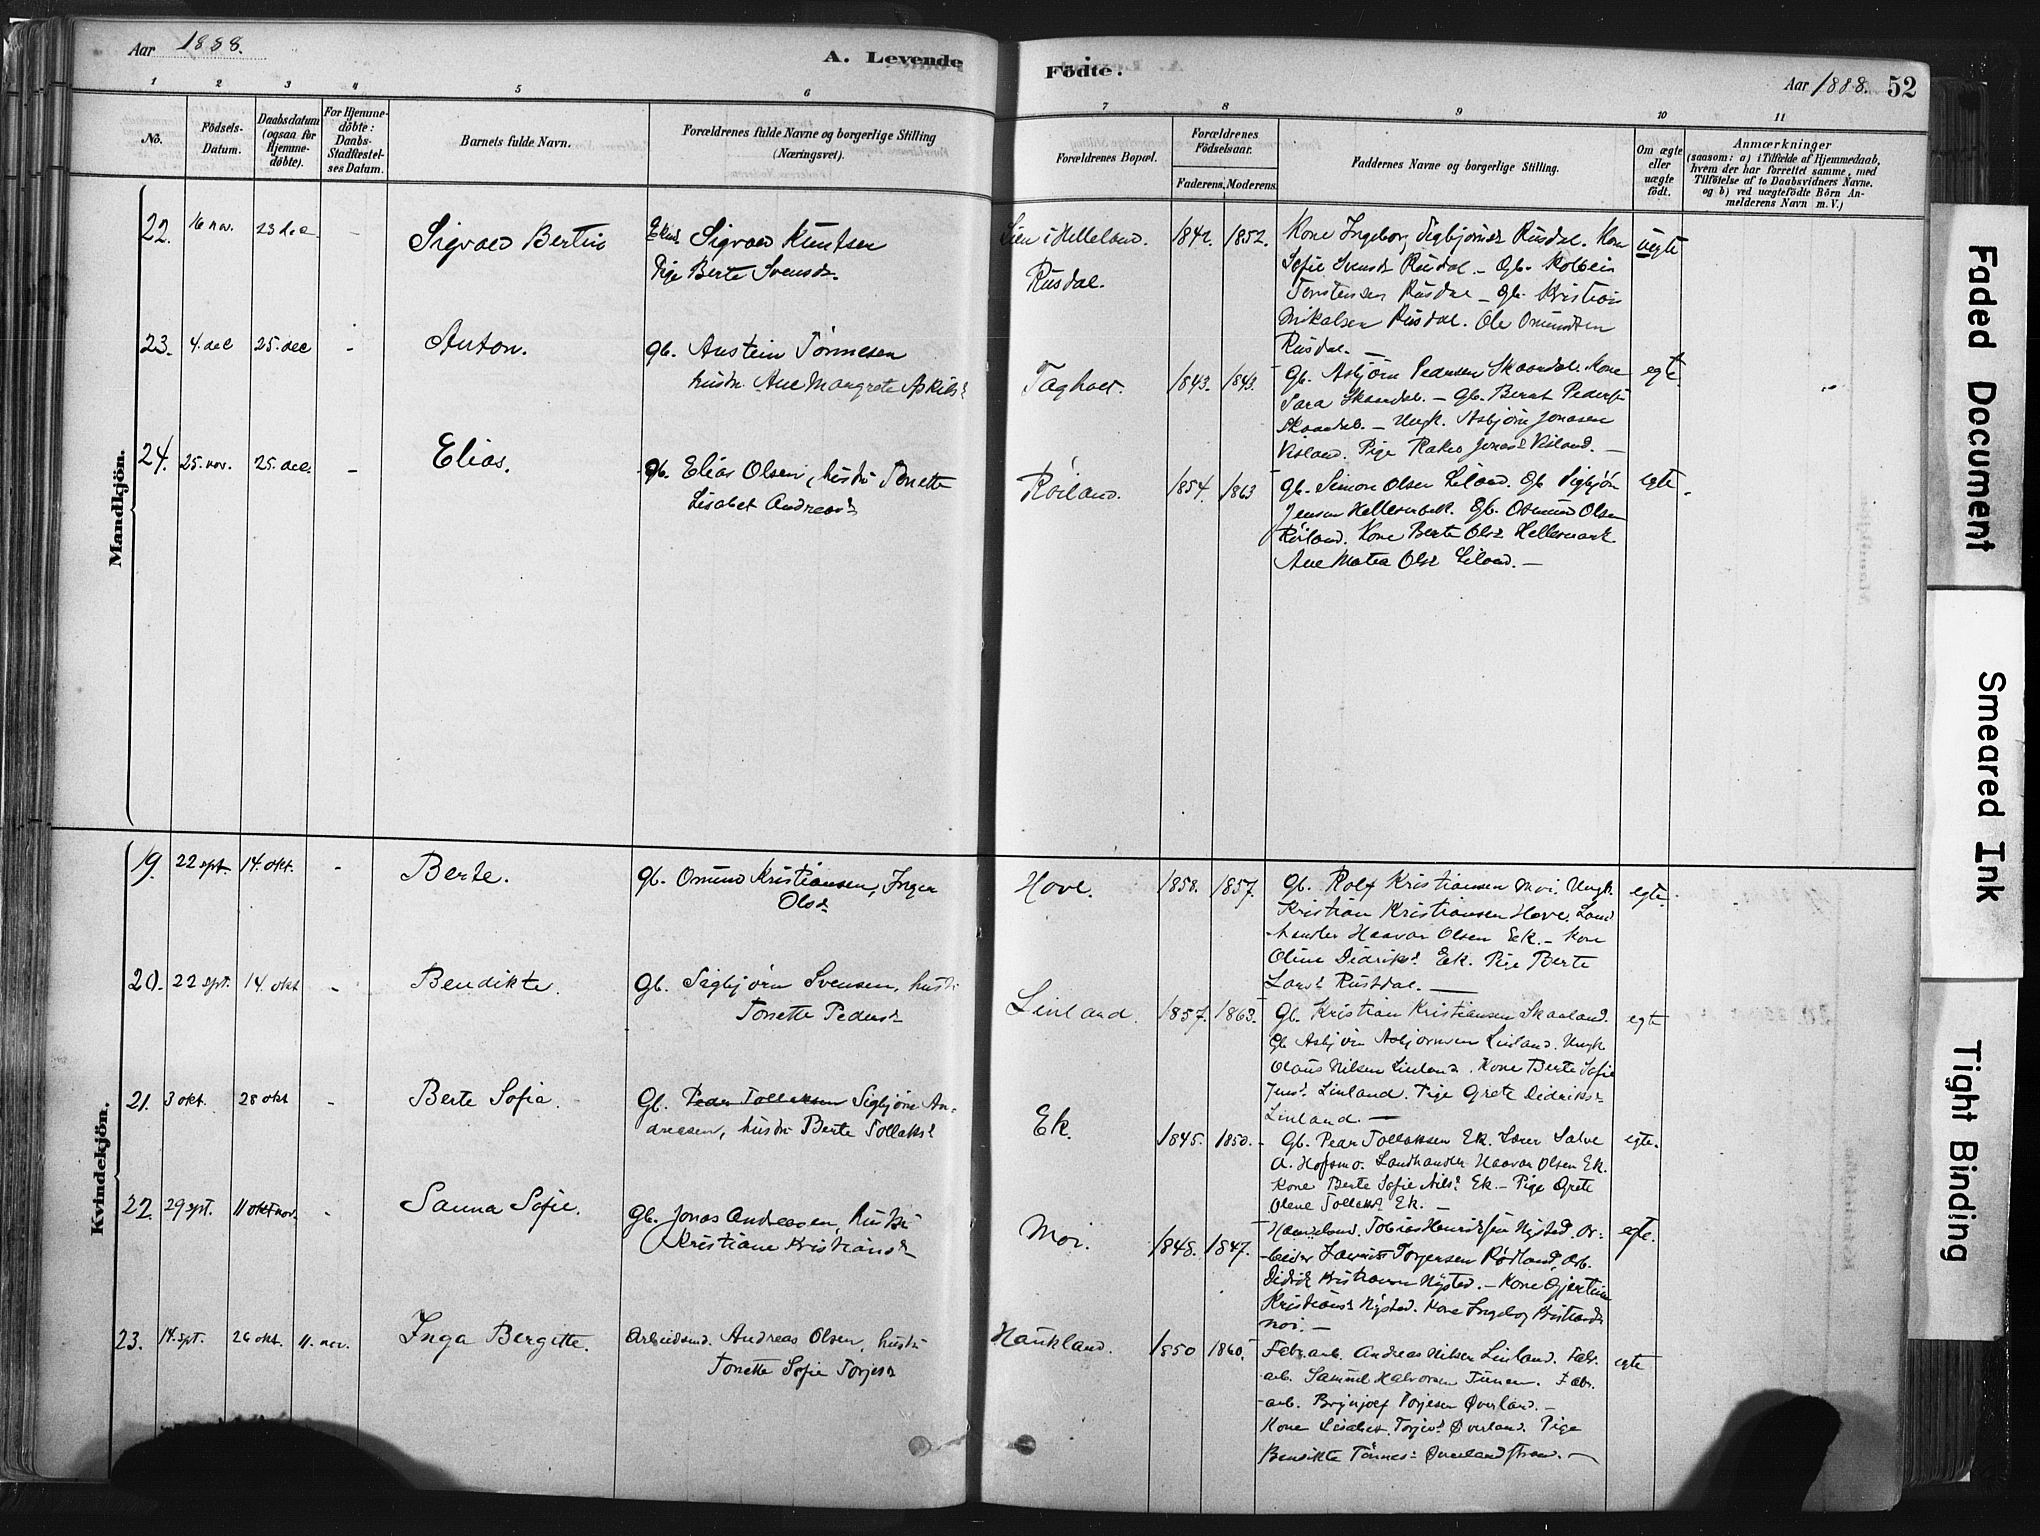 Aar 1888.
A. Levende
Födte.
Aar 1888. 52
1 2 3 4 5 6 7 8 9 10 11
No.
Födsels-
Datum.
Daabsdatum
(ogsaa for
Hjemme-
döbte).
For Hjemme-
döbte:
Daabs-
Stadfestel-
ses Datum.
Barnets fulde Navn.
Forældrenes fulde Navne og borgerlige Stilling
(Næringsvei).
Forældrenes Bopæl.
Forældrenes
Födselsaar.
Faderens. Moderens.
Faddernes Navne og borgerlige Stilling.
Om ægte
eller
uægte
födt.
Anmærkninger
(saasom: a) i Tilfælde af Hjemmedaab,
hvem der har forrettet samme, med
Tilföielse af to Daabsvidners Navne.
og b) ved uægtefödte Börn An-
melderens Navn m. V.)
Mandkjön.
22. 16 nov. 23 dec - Sigvald Bertin
Enk. Sigvald Knutsen
Pige Berte Svensd.
i Helleland.
Rusdal.
1852.
Kone Ingeborg Sigbjørnsd. Rusdal. Kone
Sofie Svensd. Rusdal - Gb. Kolbein
Torstensen Rusdal - gb. Kristian
Mikalsen Rusdal. Ole Omundsen
Rusdal. -
uegte
23. 4. dec 25. dec - Anton.
gb. Austein Tønnesen
hustr. Ane Margrete
1843. 1843.
Gb. Asbjørn Pedersen Skaardal. Kone
Sara Skaardal. - Gb. Bernt Peders.
Skaardal. - Ungk. Asbjørn Jonasen
Visland. Pige Jonasd. Visland. -
egte.
24. 25. nov. 25. dec. - Elias.
gb. Elias Olsen, hustr. Tonette
Lisabet Andreasd.
Røiland. 1854. 1863
Gb. Simon Olsen Eiland. Gb Sigbjørn
Jensen Gb. Osmund Olsen
Røiland. Kone Berte Olsd.
Ane Matea Olsd. -
egte.
Kvindekjön.
19. 22 spt. 14. okt. - Berte.
gb. Omund Kristiansen, Inger
Olsd.
Hove. 1858. 1857.
Gb. Rolf Kristiansen Moi, Ungk.
Kristian Kristiansen Hove, Land
handler Haavar Olsen Ek. - Kone
Oline Didriksd. Ek. Pige Berte
Larsd. Rusdal. -
egte.
20. 22 spt. 14. okt - Bendikte.
gb. Sigbjørn Svensen, hustr.
Tonette Pedersd.
Linland. 1857. 1863.
Gb. Kristian Kristiansen Skaaland.
Gb Asbjørn Asbjørnsen Linland. Ungk.
Olaus Nilsen Linland. Kone Berte Sofie
Jensd. Linland. Pige Grete Didriksd.
Linland. -
egte
21. 3 okt. 28 okt - Berte Sofie.
Gb. Peder Tollaksen Sigbjørn An-
dreasen, hustr. Berte Tollaksd.
Ek. 1845. 1850.
Gb. Peder Tollaksen Ek. Lærer Salve
A. Hofsmo. Landhandler Haavar Olsen Ek.
Kone Berte Sofie Nilsd. Ek. - Pige Grete
Olene Tollaksd. Ek. -
egte.
22. 29 spt. 11 okt nov. - Sanna Sofie.
Gb. Jonas Andreasen, hustr.
Kristiane Kristiansd.
Moi. 1848. 1847.
Tobias Henriksen Nysted. Ar-
beider Torgersen Rødland, arb.
Didrik Kristiansen Nysted. - Kone Gjertine
Kristiansd. Nysted. Kone Ingeborg
Moi. -
egte.
23. 14. spt. 26 okt. 11. nov. Inga Bergitte.
Arbeidsmd. Andreas Olsen, hustr.
Tonette Sofie Torjesd.
Haukland. 1850 1860.
Fabr. arb. Andreas Nilsen Linland. Fabr.
arb. Samuel Halvorsen Tunen. Fabr.
arb. Brynjolf Torjesen Øverland. -
Kone Lisabet Torjesd. Øverland. Pige
Bendikte Tønnesd. -
egte
Faded Document
Smeared Ink
Tight Binding